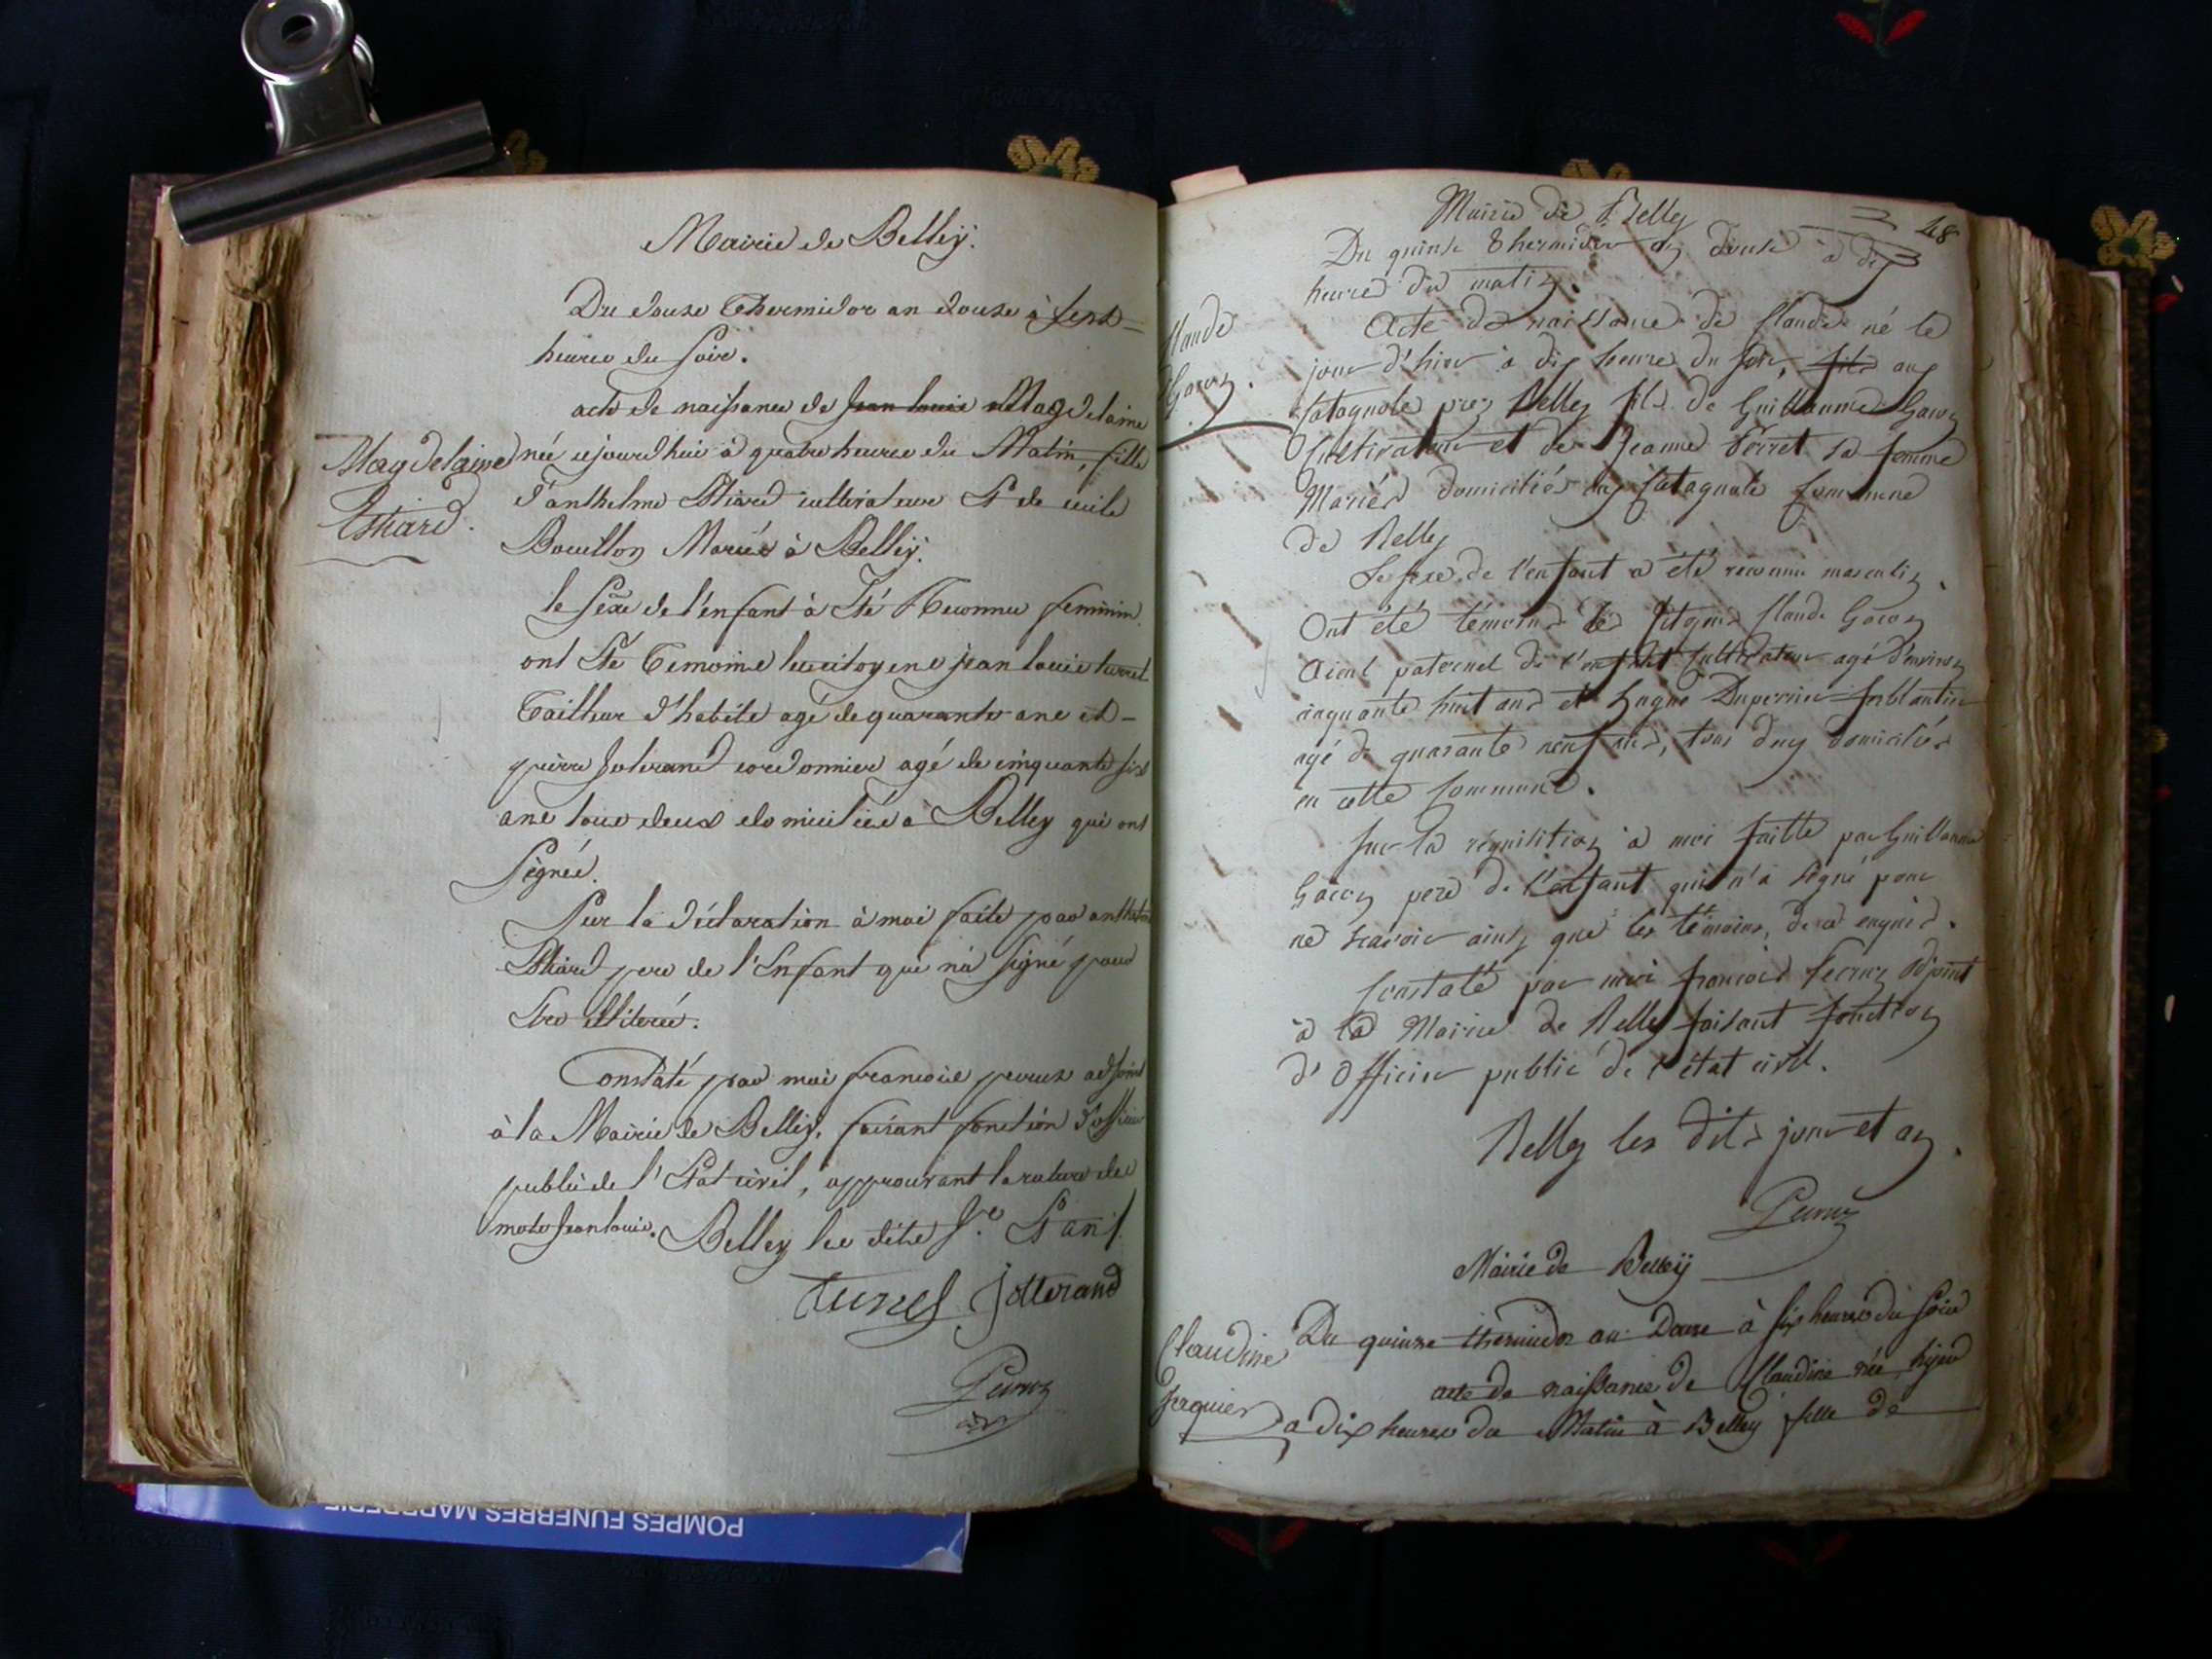 Mairie de Belley.
Du douze Thermidor an douze à sept
heures du soir.
acte de naissance de jean louis Magdelaine
née cejourdhui à quatre heures du Matin, fille
d'anthelme Ethiard cultivateur Et de cecile
Bouillon Mariés à Belley.
Magdelaine
Ethiard.
le sexe de l'enfant à Eté Reconnu feminin.
ont Eté Temoins les citoyens jean louis
Tailleur d'habits agé de quarante ans et
pierre Joterand cordonnier agé de cinquante six
ans tous deux domiciliés à Belley qui ont
Signés.
Sur la déclaration à moi faite par anthelme
Ethiard pere de l'Enfant qui n'à signé pour
Etre illiteré.
Constaté par moi francois peruz adjoint
à la Mairie de Belley, faisant fonction d'officier
public de l'Etat civil, approuvant la rature des
mots jean louis. Belley les dits Jr. Et an
Jotterand
Peruz
adj
48
Mairie de Belley
Du quinze thermidor an douze à dix
heures du matin.
Acte de naissance de Claude né le
jour d'hier à dix heures du soir, fils au
Catagnole prez Belley fils de Guillaume Gacon
Cultivateur et de Jeanne Perret sa femme
Mariés domiciliés au Catagnole Commune
de Belley
Claude
Gacon.
Le sexe de l'enfant a été reconnu masculin.
Ont été témoins les Citoyens Claude Gacon
Aieul paternel de l'enfant Cultivateur agé d'environ
cinquante huit ans et Hugue Duperrier ferblantier
agé de quarante neuf ans, tous deux domiciliés
en cette Commune.
Sur la réquisition à moi faitte par Guillaume
Gacon pere de l'enfant qui n'a signé pour
ne scavoir ainsi que les témoins, de ce enquis.
Constaté par moi francois Peruz Adjoint
à la Mairie de Belley faisant fonction
d'Officier public de l'état civil.
Belley les dits jour et an.
Peruz
Mairie de Belleÿ
Du quinze thermidor an Douze à six heures du soir
acte de naissance de Claudine née hier
a dix heures du Matin à Belley fille de
Claudine
Jaquier
POMPES FUNEBRES MARBRERIE